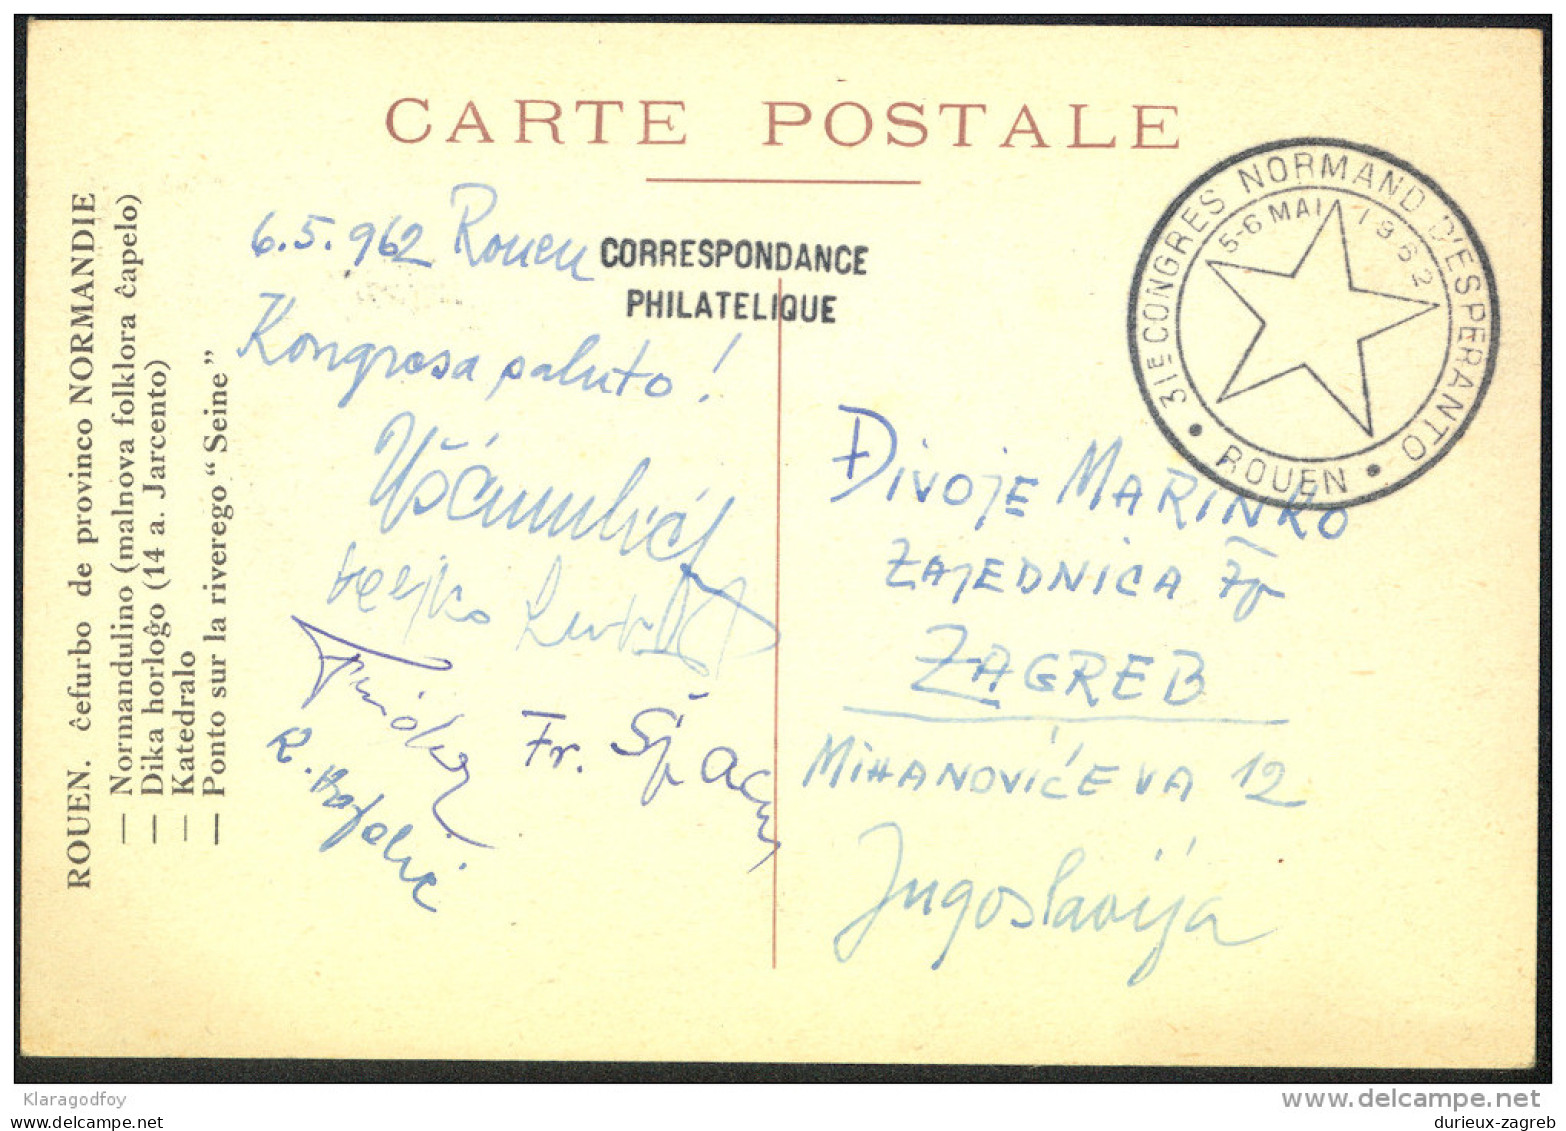 CARTE POSTALE
ROUEN. ĉefurbo de provinco NORMANDIE
— Normandulino (malnova folklora ĉapelo)
— Dika horloĝo (14 a. Jarcento)
— Katedralo
— Ponto sur la riverego “Seine”
6.5.962 Rouen
CORRESPONDANCE
PHILATELIQUE
Kongresa saluto!
• 31E CONGRES NORMAND D'ESPERANTO •
5-6 MAI 1962
ROUEN
Đivoje MARINKO
ZAJEDNICA
ZAGREB
MIHANOVIĆEVA 12
Jugoslavija
Fr.
R.
Klaragodfoy
www.delcampe.net
durieux-zagreb